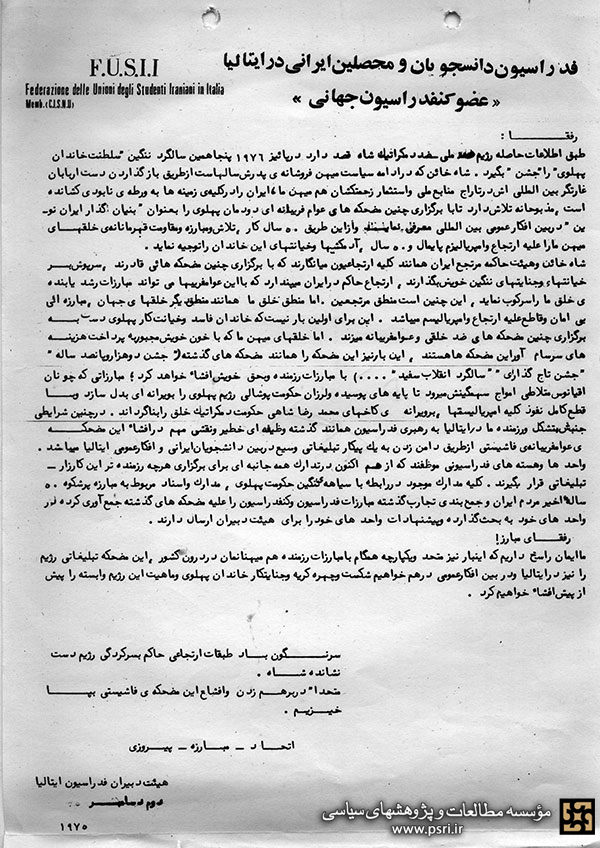 F.U.S.I.I
Federazione delle Unioni degli Studenti Iraniani in Italia
Memb.(C.I.S.N.U)
فدراسیون دانسجویان و محصلین ایرانی در ایتالیا
«عضو کنفدراسیون جهانی»
رفقا :
طبق اطلاعات حاصله رژیم ضد ملی ـ ضد دمکراتیک شاه قصد دارد در پائیز ۱۹۷۶ پنجاهمین سالگرد ننگین "سلطنت خاندان
پهلوی" را "جشن" بگیرد . شاه خائن که در ادامه سیاست میهن فروشانه ی پدرش سالهاست از طریق باز گذاردن دست اربابان
غارتگر بین المللی اش در تاراج منابع ملی و استثمار زحمتکشان هم میهن ما، ایران را در کلیه ی زمینه ها به ورطه ی نابودی کشانده
است ، مذبوحانه تلاش دارد تا با برگزاری چنین مضحکه های عوام فریبانه ای دودمان پهلوی را بعنوان "بنیان گذار ایران نو-
ین" در بین افکار عمومی بین المللی معرفی نماید و از این طریق ۵۰ سال کار ، تلاش و مبارزه و مقاومت قهرمانانه ی خلقهای
میهن ما را علیه ارتجاع و امپریالیزم پایمال و ۵۰ سال آدمکشیها و خیانتهای این خاندان را توجیه نماید .
شاه خائن و هیئت حاکمه مرتجع ایران همانند کلیه ارتجاعیون میانگارند که با برگزاری چنین مضحکه هائی قادرند ، سرپوش بر
خیانتها و جنایتهای ننگین خویش بگذارند ، ارتجاع حاکم در ایران میپندارد که با این عوامفریبیها می تواند مبارزات رشد یابنده
ی خلق ما را سرکوب نماید ، این چنین است منطق مرتجعین . اما منطق خلق ما همانند منطق دیگر خلقهای جهان ، مبارزه الی
بی امان و قاطع علیه ارتجاع و امپریالیسم میباشد . این برای اولین بار نیست که خاندان فاسد و خیانت کار پهلوی دست به
برگزاری چنین مضحکه های ضد خلقی و عوامفریبانه میزند . اما خلقهای میهن ما که با خون خویش مجبور به پرداخت هزینه
های سرسام آور این مضحکه ها هستند ، این بار نیز این مضحکه را همانند مضحکه های گذشته (" جشن دو هزار و پانصد ساله"
"جشن تاج گذاری" "سالگرد انقلاب سفید" ....) با مبارزات رزمنده و بحق خویش افشاء خواهد کرد ؛ مبارزاتی که چونان
اقیانوس متلاطمی امواج سهمگینش میرود تا پایه های پوسیده و لرزان حکومت پوشالی رژیم پهلوی را بویرانه ای بدل سازد و با
قطع کامل نفوذ کلیه امپریالیستها ، بر ویرانه ی کاخهای محمد رضا شاهی حکومت دمکراتیک خلق را بنا گذارد . در چنین شرایطی
جنبش متشکل و رزمنده ما در ایتالیا به رهبری فدراسیون همانند گذشته وظیفه ای خطیر و نقشی مهم در افشاء این مضحکه
ی عوامفریبانه ی فاشیستی از طریق دامن زدن به یک پیکار تبلیغاتی وسیع در بین دانشجویان ایرانی و افکار عمومی ایتالیا میباشد .
واحد ها و هسته های فدراسیونی موظفند که از هم اکنون در تدارک همه جانبه ای برای برگزاری هر چه رزمنده تر این کارزار-
تبلیغاتی قرار بگیرند . کلیه مدارک موجود در رابطه با سیاهه ننگین حکومت پهلوی ، مدارک و اسناد مربوط به مبارزه پرشکوه ۵۰
ساله اخیر مردم ایران و جمع بندی تجارب گذشته مبارزات فدراسیون و کنفدراسیون را علیه مضحکه های گذشته جمع آوری کرده در
واحد های خود به بحث گذارده و پیشنهادات واحد های خود را برای هیئت دبیران ارسال دارند .
رفقای مبارز!
ما ایمان راسخ داریم که اینبار نیز متحد و یکپارچه همگام با مبارزات رزمنده هم میهنانمان در درون کشور ، این مضحکه تبلیغاتی رژیم
را نیز در ایتالیا و در بین افکار عمومی در هم خواهیم شکست و چهره کریه و جنایتکار خاندان پهلوی و ماهیت این رژیم وابسته را بیش
از پیش افشاء خواهیم کرد .
سرنگون باد طبقات ارتجاعی حاکم بسرکردگی رژیم دست
نشانده شاه .
متحداً در برهم زدن و افشاء این مضحکه ی فاشیستی بپا
خیزیم .
اتحاد ـ مبارزه ـ پیروزی
هیئت دبیران فدراسیون ایتالیا
دوم دسامبر
۱۹۷۵
مؤسسه مطالعات و پژوهشهای سیاسی
www.psri.ir